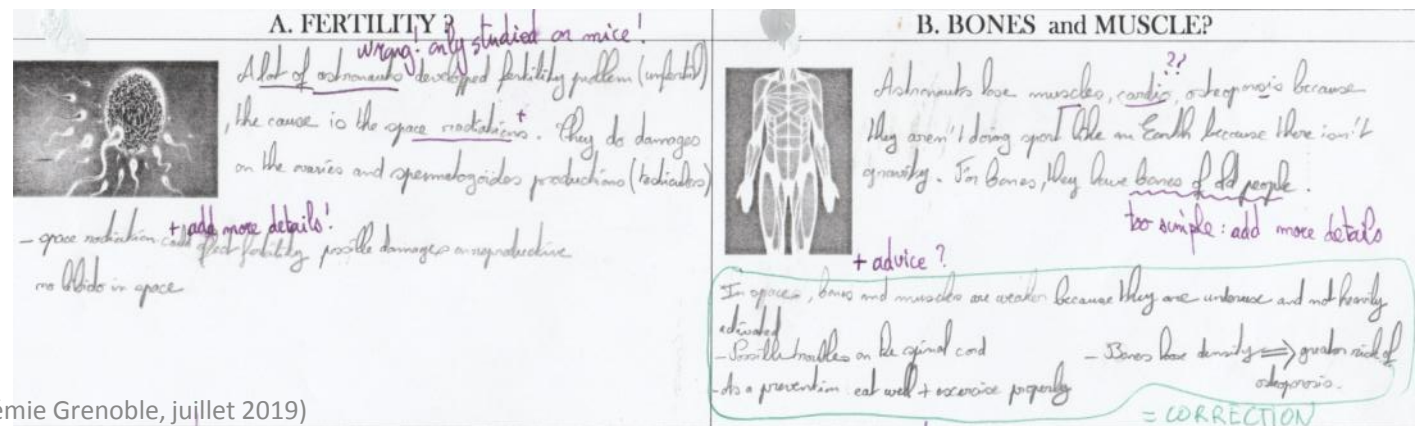 A. FERTILITY ?
wrong! only studied on mice!
A lot of astronauts developped fertility problem (unfertil)
, the cause is the space radiations +. They do damages
on the ovaries and spermatogoides productions (testicules)
+ add more details!
- space radiation could affect fertility possible damages on reproductive
no libido in space
B. BONES and MUSCLE?
??
Astronauts lose muscles, cardio, osteoporosis because
they aren't doing sport like on Earth because there isn't
gravity. For bones, they have bones of old people.
too simple: add more details
+ advice ?
In spaces, bones and muscles are weaker because they are underuse and not heavily
activated
- Possible troubles on the spinal cord
- Bones lose density ⟹ greater risk of
osteoporosis.
- As a prevention: eat well + exercise properly
= CORRECTION
emie Grenoble, juillet 2019)